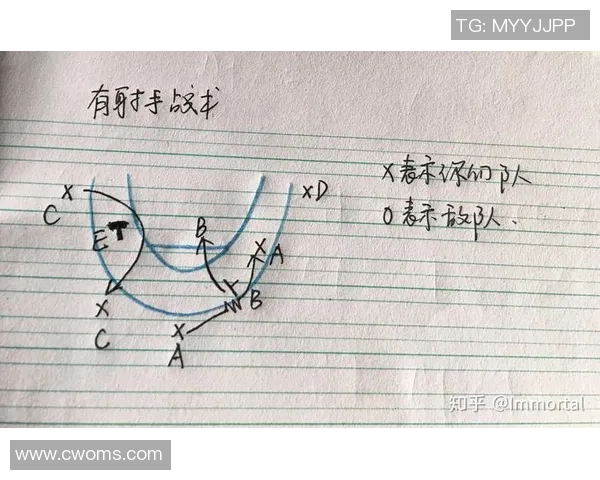 TG: MYYJJPP
有射手战术
X表示你的队
O表示敌队.
X
C
E
B
X
A
XD
X
C
B
X
A
知乎 @Immortal
www.cwoms.com